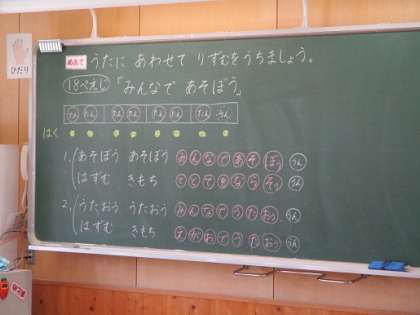 ひだり
めあて うたに あわせて りずむをうちましょう。
18ぺえじ 「みんなで あそぼう」
たん たん たん たん たん たん たん うん
はく
1. あそぼう あそぼう みんなであそぼうん
はずむ きもち てとてをならそううん
2. うたおう うたおう みんなでうたおううん
はずむ きもち えがおでうたおううん